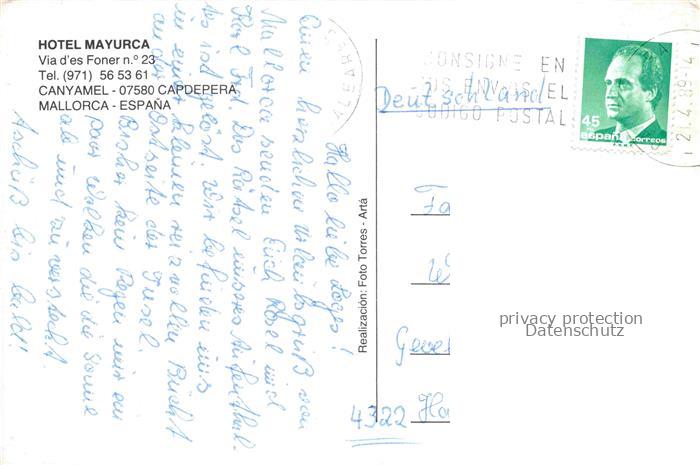 HOTEL MAYURCA
Via d'es Foner n.º 23
Tel. (971) 56 53 61
CANYAMEL - 07580 CAPDEPERA
MALLORCA - ESPAÑA
Hallo liebe Loges!
Einen herzlichen Urlaubsgruß von
Mallorca senden Euch Rosel und
Karl Ford. Das Rätsel unseres Aufenthal-
tes ist gelöst, wir befinden uns
in einer kleinen reizvollen Bucht
an der Ostseite der Insel.
Bisher kein Regen nur ein
paar Wolken die die Sonne
ab und zu versteckt.
Tschüß bis bald!
Realización: Foto Torres - Artá
CONSIGNE EN
SUS ENVIOS EL
CODIGO POSTAL
21.4.89-14
45
españa correos
Deutschland
Fa
W
Gever
4322 Ha
privacy protection
Datenschutz